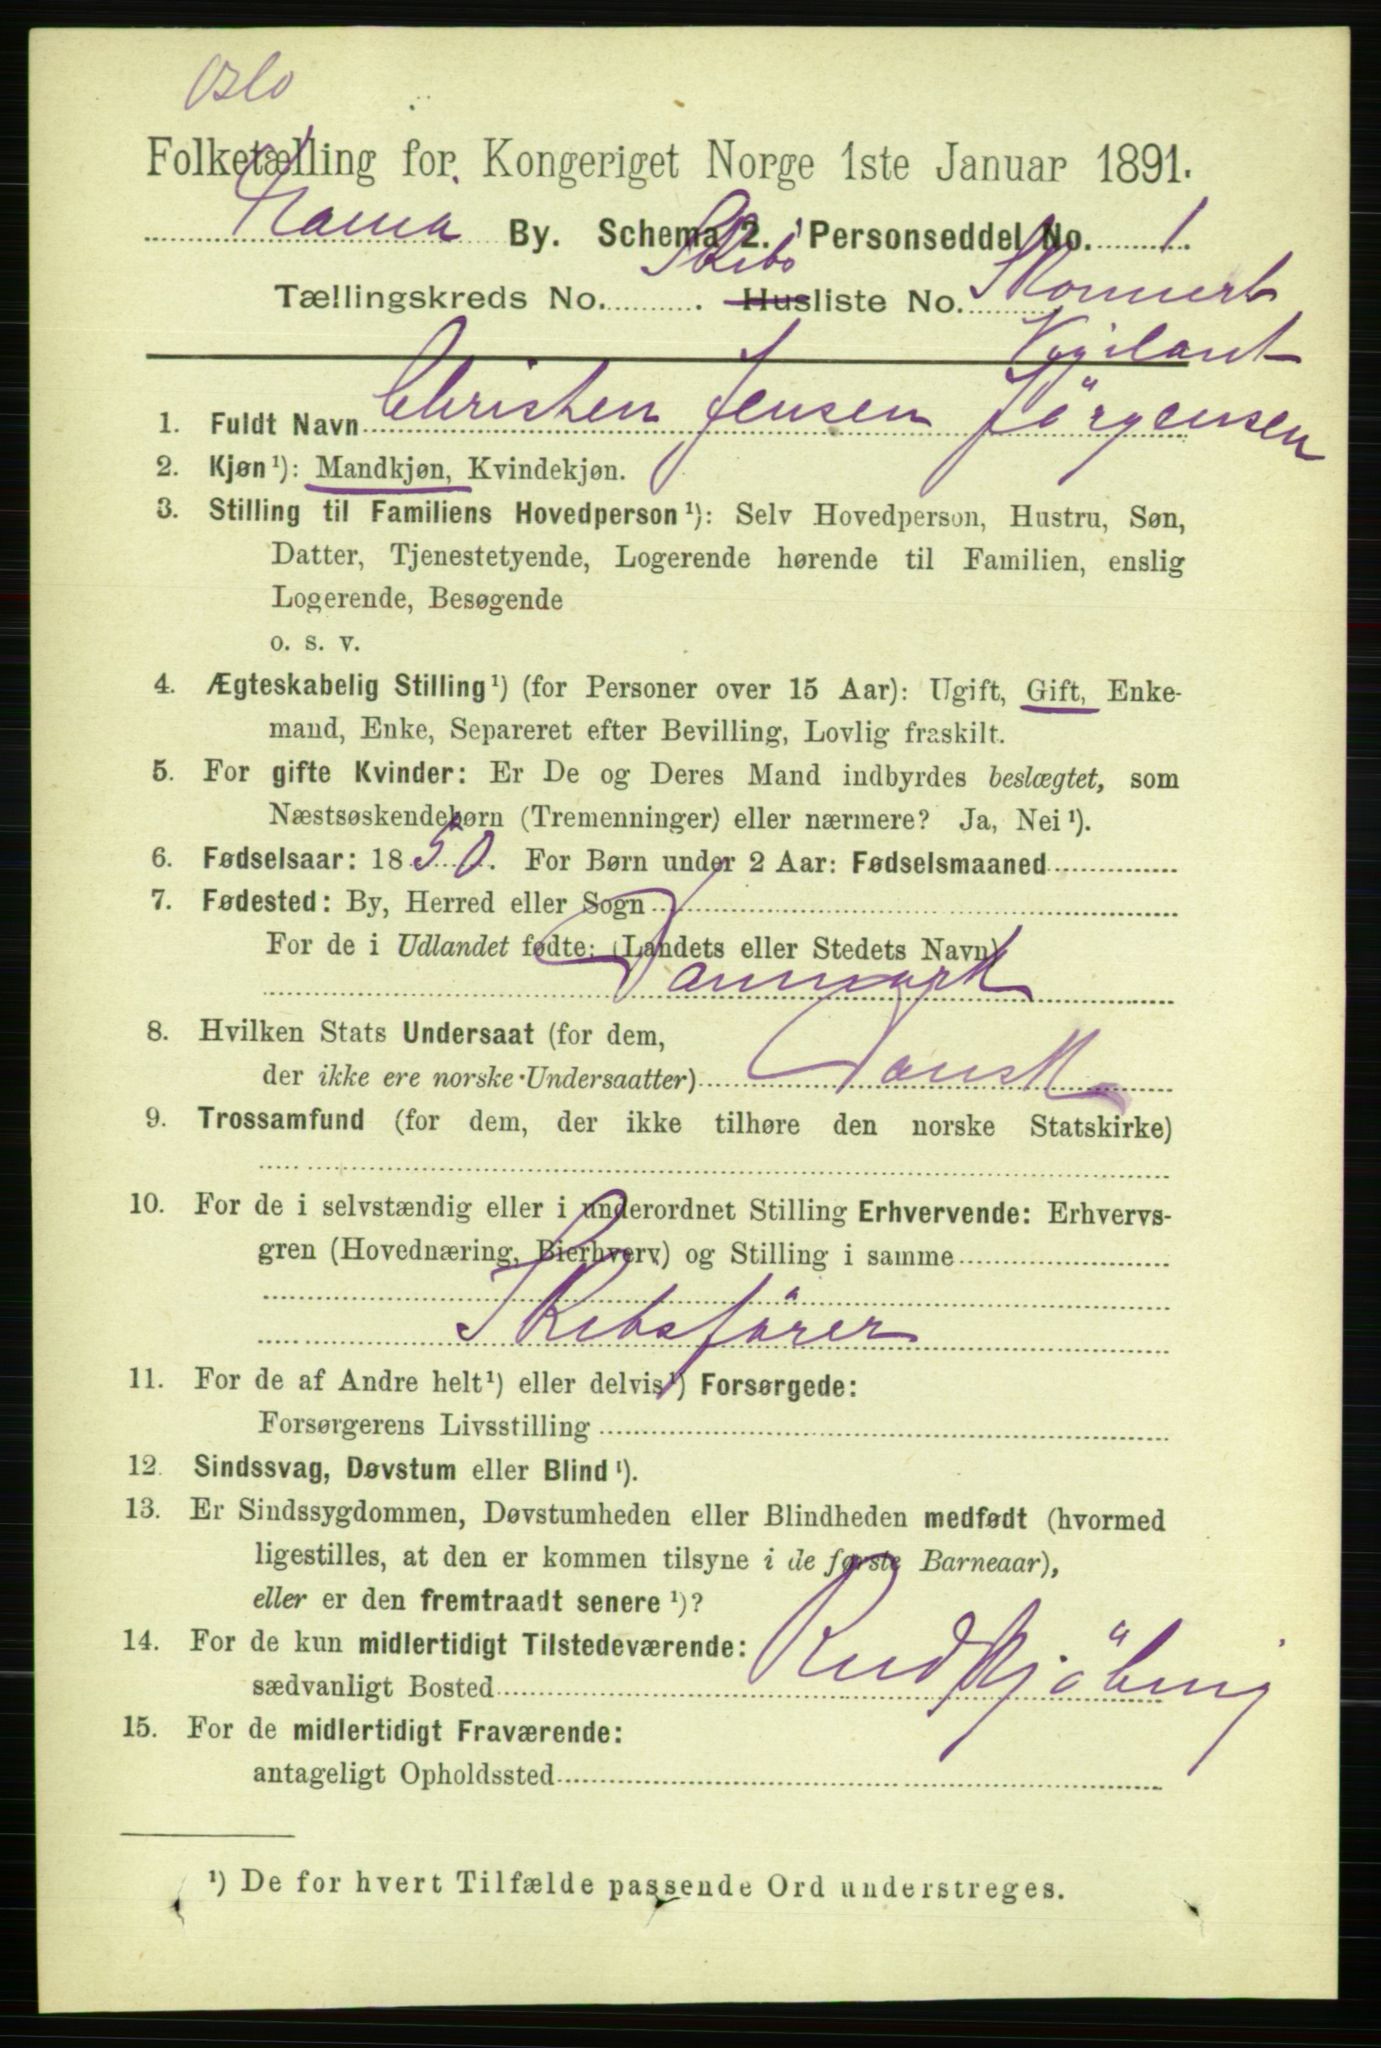 Oslo
Folketælling for Kongeriget Norge 1ste Januar 1891.
Havn By. Schema 2. Personseddel No. 1.
Tællingskreds No. . Skibsliste No. Skonnert
Vigilant
1. Fuldt Navn Christen Jensen Jörgensen
2. Kjøn¹): Mandkjøn, Kvindekjøn.
3. Stilling til Familiens Hovedperson¹): Selv Hovedperson, Hustru, Søn,
Datter, Tjenestetyende, Logerende hørende til Familien, enslig
Logerende, Besøgende
o. s. v.
4. Ægteskabelig Stilling¹) (for Personer over 15 Aar): Ugift, Gift, Enke-
mand, Enke, Separeret efter Bevilling, Lovlig fraskilt.
5. For gifte Kvinder: Er De og Deres Mand indbyrdes beslægtet, som
Næstsøskendebørn (Tremenninger) eller nærmere? Ja, Nei¹).
6. Fødselsaar: 1850. For Børn under 2 Aar: Fødselsmaaned
7. Fødested: By, Herred eller Sogn
For de i Udlandet fødte: (Landets eller Stedets Navn)
Danmark
8. Hvilken Stats Undersaat (for dem,
der ikke ere norske Undersaatter) Dansk
9. Trossamfund (for dem, der ikke tilhøre den norske Statskirke)
10. For de i selvstændig eller i underordnet Stilling Erhvervende: Erhvervs-
gren (Hovednæring, Bierhverv) og Stilling i samme
Skibsförer
11. For de af Andre helt¹) eller delvis¹) Forsørgede:
Forsørgerens Livsstilling
12. Sindssvag, Døvstum eller Blind¹).
13. Er Sindssygdommen, Døvstumheden eller Blindheden medfødt (hvormed
ligestilles, at den er kommen tilsyne i de første Barneaar),
eller er den fremtraadt senere¹)?
14. For de kun midlertidigt Tilstedeværende:
sædvanligt Bosted Rudkjöbing
15. For de midlertidigt Fraværende:
antageligt Opholdssted
¹) De for hvert Tilfælde passende Ord understreges.